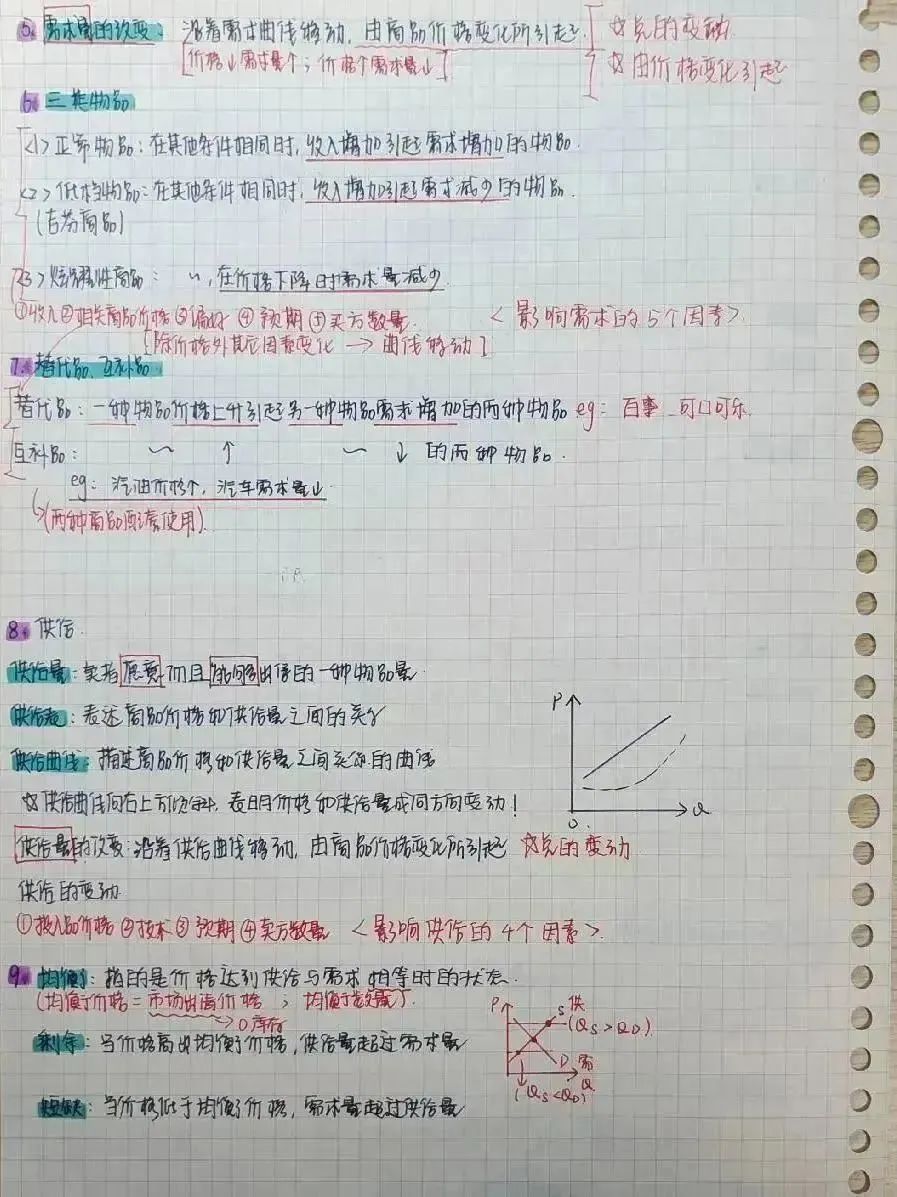 5. 需求量的改变：沿着需求曲线移动，由商品价格变化所引起 ☆点的变动
[价格↓需求量↑；价格↑需求量↓] ☆由价格变化引起
6. 三类物品
<1>正常物品：在其他条件相同时，收入增加引起需求增加的物品.
<2>低档物品：在其他条件相同时，收入增加引起需求减少的物品.
(吉芬商品)
<3>炫耀性商品： 〃，在价格下降时需求量减少.
①收入②相关商品价格③偏好 ④预期⑤买方数量. <影响需求的5个因素>.
[除价格外其它因素变化 → 曲线移动]
7. 替代品、互补品.
替代品：一种物品价格上升引起另一种物品需求增加的两种物品 eg：百事 可口可乐.
互补品： ~ ↑ ~ ↓ 的两种物品.
eg：汽油价格↑，汽车需求量↓
(两种商品配套使用).
8. 供给.
供给量：卖者愿意而且能够出售的一种物品量.
供给表：表述商品价格和供给量之间的关系
供给曲线：描述商品价格和供给量之间关系的曲线
☆供给曲线向右上方倾斜，表明价格和供给量成同方向变动！
P
Q
O
供给量的改变：沿着供给曲线移动，由商品价格变化所引起 ☆点的变动
供给的变动
①投入品价格②技术③预期④卖方数量 <影响供给的4个因素>.
9. 均衡：指的是价格达到供给与需求相等时的状态.
(均衡价格=市场出清价格；均衡数量).
→0库存
P S 供
(Qs>QD)
D 需
Q
(Qs<QD)
剩余：当价格高出均衡价格，供给量超过需求量
短缺：当价格低于均衡价格，需求量超过供给量